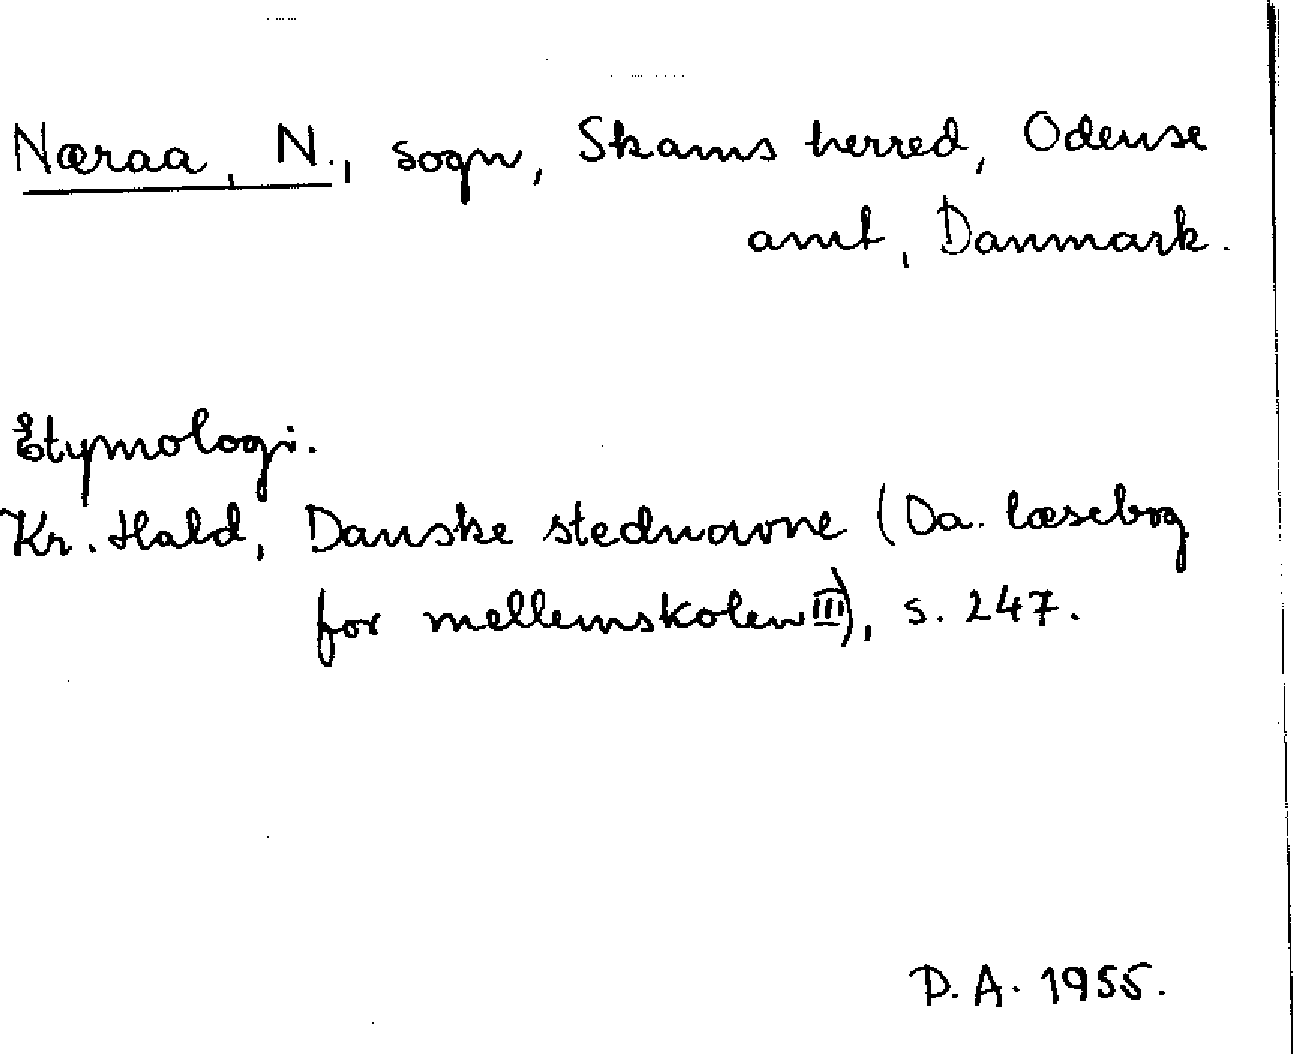 Næraa, N., sogn, Skams herred, Odense
amt, Danmark.
Etymologi.
Kr. Hald, Danske stednavne (Da. læsebog
for mellemskolen III), s. 247.
D. A. 1955.